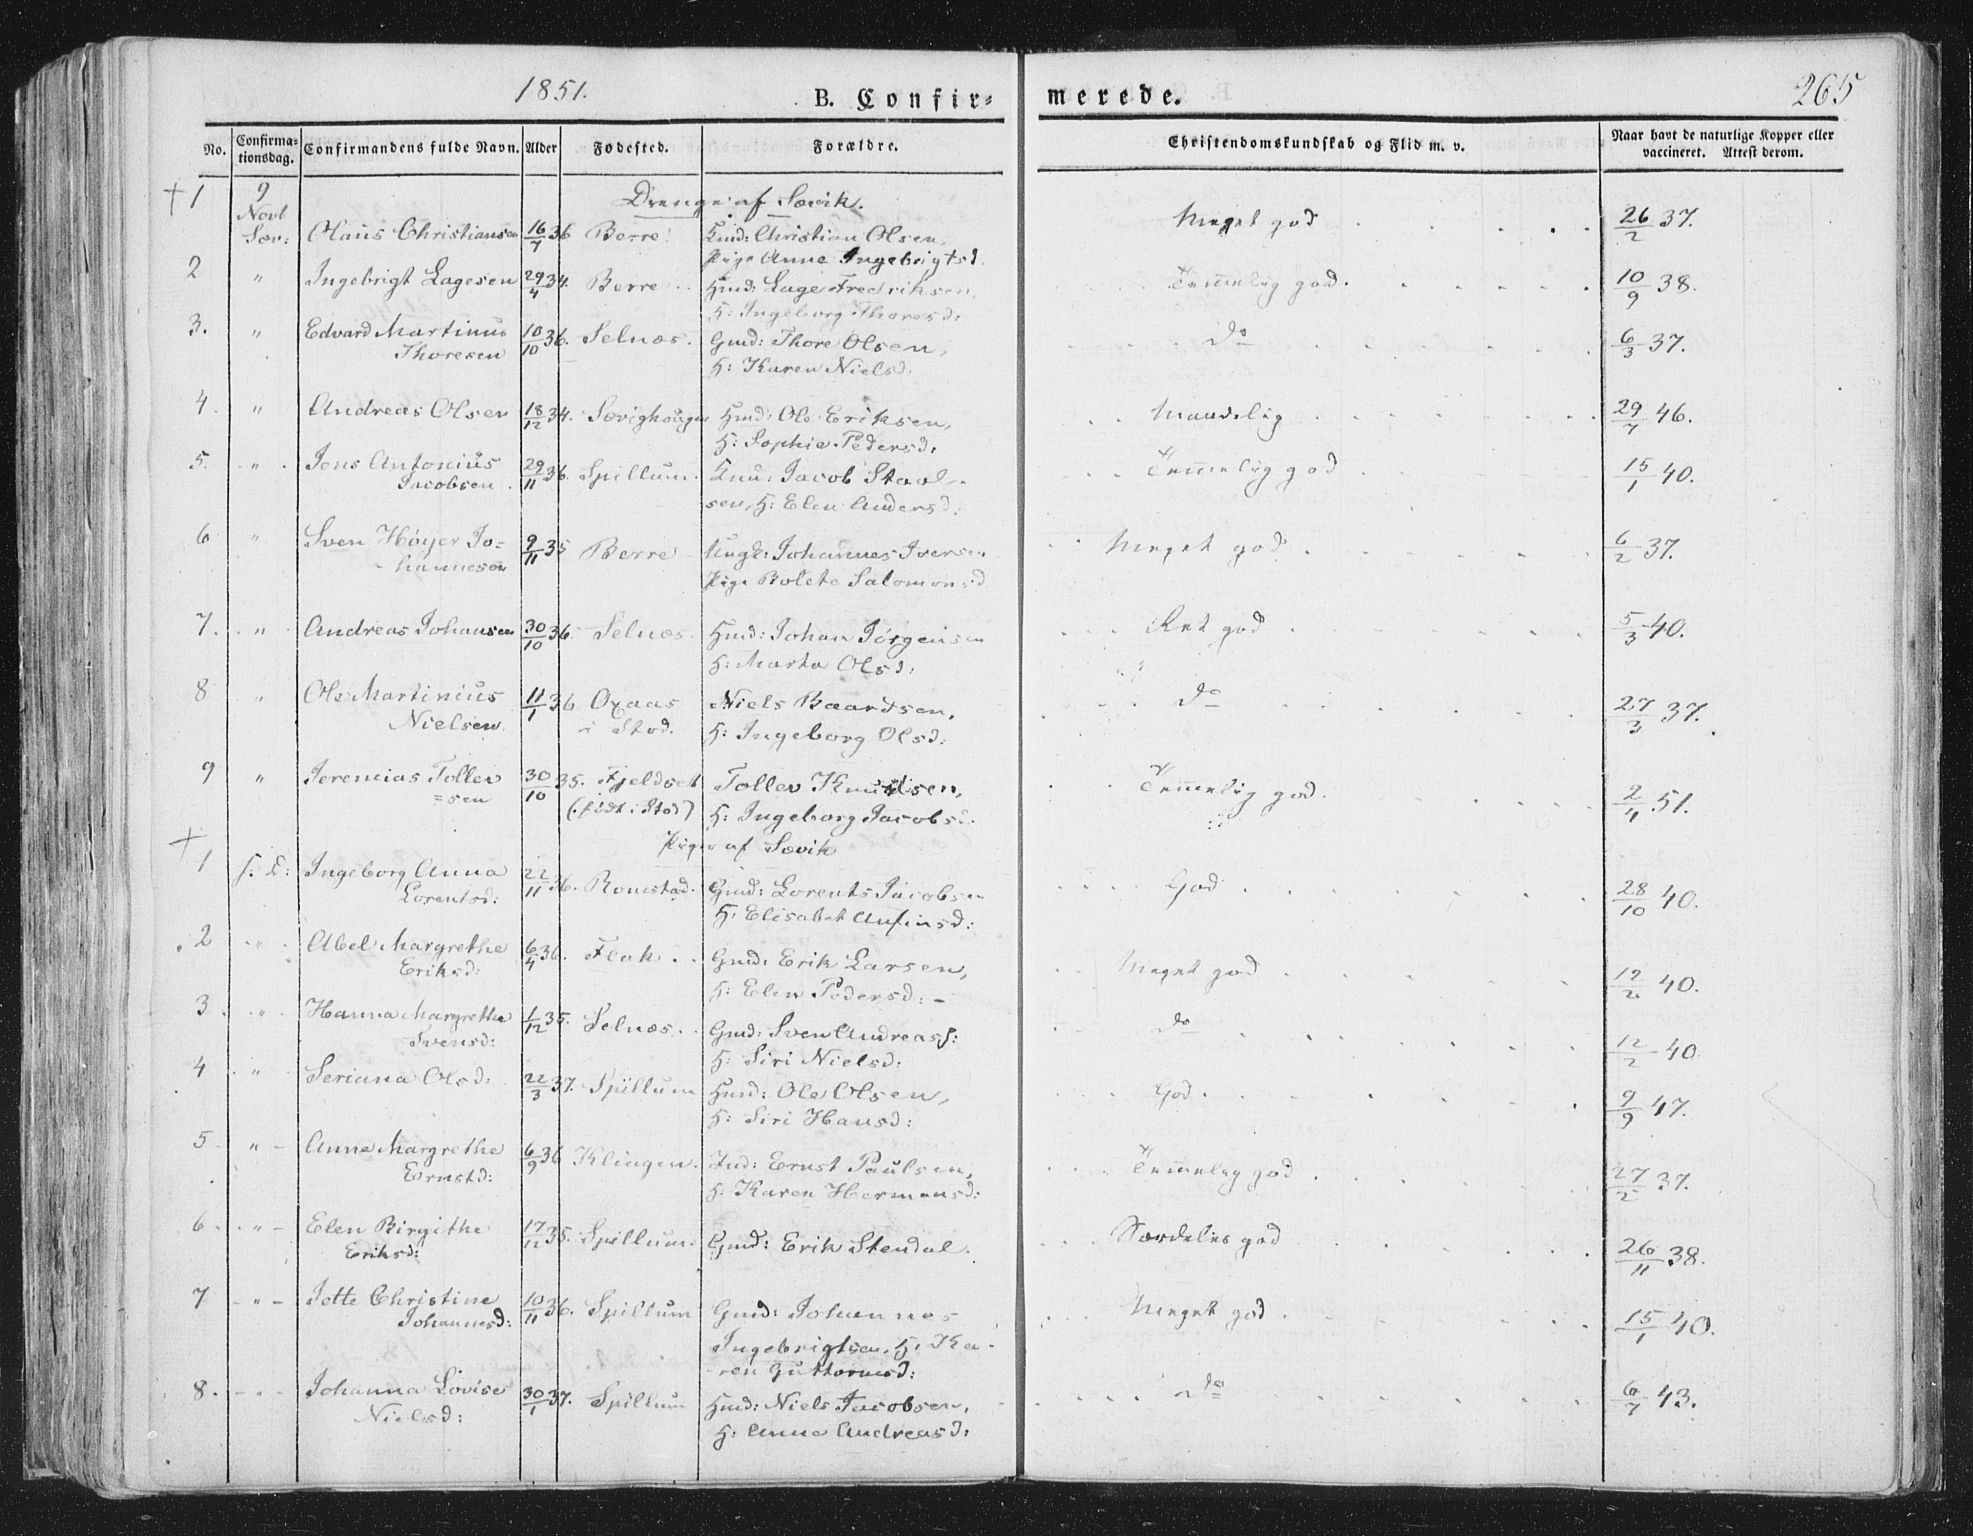 1851.
B. Confir=
merede.
265
No.
Confirma=
tionsdag.
Confirmandens fulde Navn.
Alder
Fødested.
Forældre.
Christendomskundskab og Flid m. v.
Naar havt de naturlige Kopper eller
vaccineret. Attest derom.
Drenge af Sævik.
+ 1 9 Novb Sæv: Olaus Christiansen 16/7 36 Berre Christian Olsen, Meget god 26/2 37.
Pige Anne Ingebrigtsd.
2 " Ingebrigt Lagesen 29/4 34. Berre Hmd: Lage Fredriksen, Temmelig god. 10/9 38.
H: Ingeborg Thoresd:
3. " Edvard Martinus 10/10 36. Selnæs. Gmd: Thore Olsen, do 6/3 37.
Thoresen H: Karen Nielsd.
4. " Andreas Olsen 18/12 34. Sævighougen Hmd: Ole Eriksen, Maadelig 29/7 46.
H: Sophie Pedersd:
5. " Jens Antonius 29/11 36. Spillum. Jacob Staal- Temmelig god 15/1 40.
Jacobsen sen, H: Elen Andersd:
6 " Sven Høyer Jo= 9/11 35 Berre Ungk: Johannes Iversen Meget god 6/2 37.
hannesen Pige Bolete Salomonsd
7. " Andreas Johansen 30/10 36. Selnæs. Hmd: Johan Jørgensen Ret god 5/3 40.
H: Marta Olsd:
8 " Ole Martinius 11/1 36. Oxaas Niels Baardsen, do 27/3 37.
Nielsen i Stod. H: Ingeborg Olsd:
9 " Jeremias Tollev 30/10 35. Fjeldset Tollev Knudsen, Temmelig god. 2/4 51.
=sen (født i Stod) H: Ingeborg Jacobsd.
Piger af Sævik
+ 1 Ingeborg Anna 22/11 36. Romstad. Gmd: Lorents Jacobsen God 28/10 40.
Lorentsd: H: Elisabet Anfinsd:
2 " Abel Margrethe 6/4 36. Flak Gmd: Erik Larsen, Meget god 12/2 40.
Eriksd: H: Elen Pedersd:
3 " Hanna Margrethe 1/12 35. Selnæs. Gmd: Sven Andreass: do 12/2 40.
Svensd: H: Siri Nielsd:
4 " Seriana Olsd: 22/3 37. Spillum Hmd: Ole Olsen, God. 9/9 47.
H: Siri Hansd:
5 " Anne Margrethe 6/9 36 Klingen. Ind: Ernst Paulsen, Temmelig god 27/2 37.
Ernstd: H: Karen Hermansd:
6 " Elen Birgithe 17/12 35. Spillum. Gmd: Erik Stendal. Særdeles god 26/11 38.
Eriksd:
7 " Jette Christine 10/11 36. Spillum Gmd: Johannes Meget god 15/1 40.
Johannesd: Ingebrigtsen, H: Ka-
ren Guttormsd:
8. " Johanna Lovise 30/1 37. Spillum Hmd: Niels Jacobsen, do 6/7 43.
Nielsd: H: Anne Andreasd: